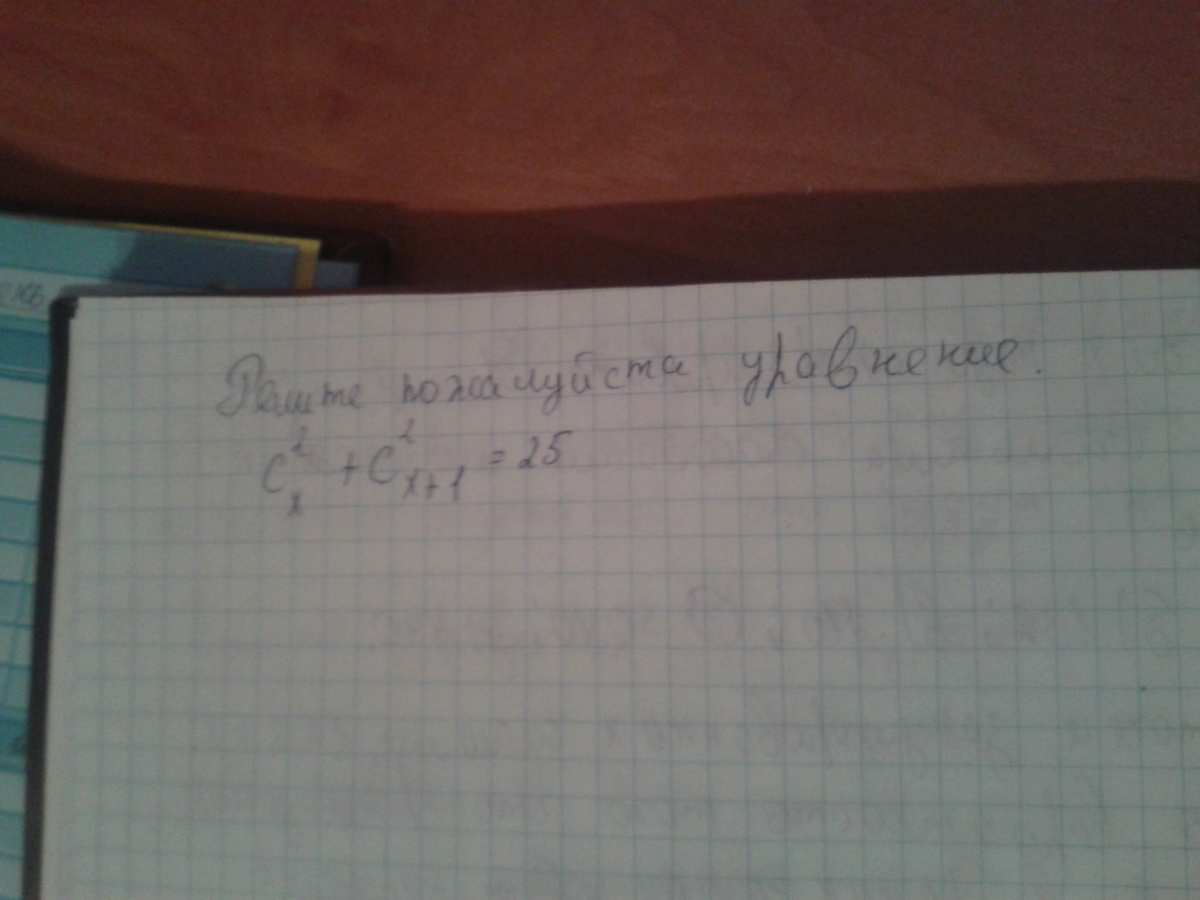 Решите пожалуйста уравнение.
C²ₓ + C²ₓ₊₁ = 25